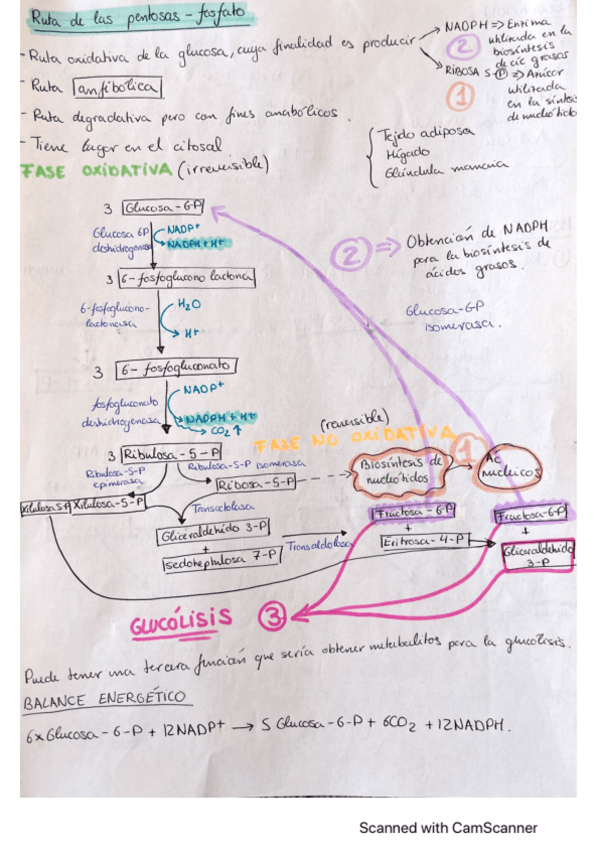 Ruta de las pentosas - fosfato
- Ruta oxidativa de la glucosa, cuya finalidad es producir
NADPH => Enzima
utilizada en la
biosíntesis
de ác grasos
②
RIBOSA 5-P => Azúcar
utilizada
en la síntesis
de nucleótidos
①
- Ruta anfibólica
- Ruta degradativa pero con fines anabólicos.
- Tiene lugar en el citosol
Tejido adiposo
Hígado
Glándula mamaria
FASE OXIDATIVA (irreversible)
3 Glucosa-6-P
Glucosa 6P
deshidrogenasa
NADP+
NADPH+H+
② => Obtención de NADPH
para la biosíntesis de
ácidos grasos.
3 6-fosfoglucono lactona
Glucosa-6P
isomerasa.
6-fosfoglucono-
lactonasa
H2O
H+
3 6-fosfogluconato
fosfogluconato
deshidrogenasa
NADP+
NADPH + H+
CO2↑
(reversible)
FASE NO OXIDATIVA
3 Ribulosa-5-P
Ribulosa-5-P
epimerasa
Ribulosa-5-P isomerasa
Ribosa-5-P
Biosíntesis de
nucleótidos
①
Ác
nucleicos
Xilulosa 5P
Xilulosa-5-P
Transcetolasa
Gliceraldehído 3-P
+
Sedoheptulosa 7-P
Transaldolasa
Fructosa-6-P
+
Eritrosa-4-P
Fructosa-6-P
+
Gliceraldehído
3-P
GLUCÓLISIS ③
Puede tener una tercera función que sería obtener metabolitos para la glucólisis.
BALANCE ENERGÉTICO
6xGlucosa-6-P + 12NADP+ → 5 Glucosa-6-P + 6CO2 + 12NADPH.
Scanned with CamScanner